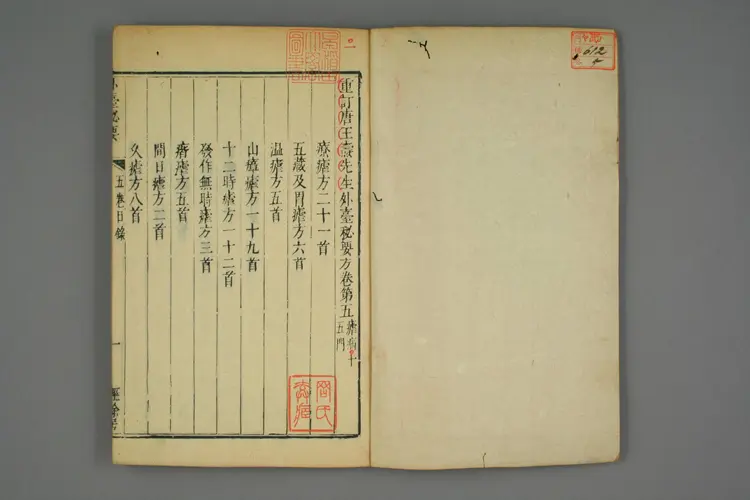 重訂唐王燾先生外臺秘要方卷第五 瘧病十五門
療瘧方二十一首
五藏及胃瘧方六首
温瘧方五首
山瘴瘧方一十九首
十二時瘧方一十二首
發作無時瘧方三首
瘧方五首
間日瘧方二首
久瘧方八首
外臺秘要
五卷目錄
一
經餘居
612